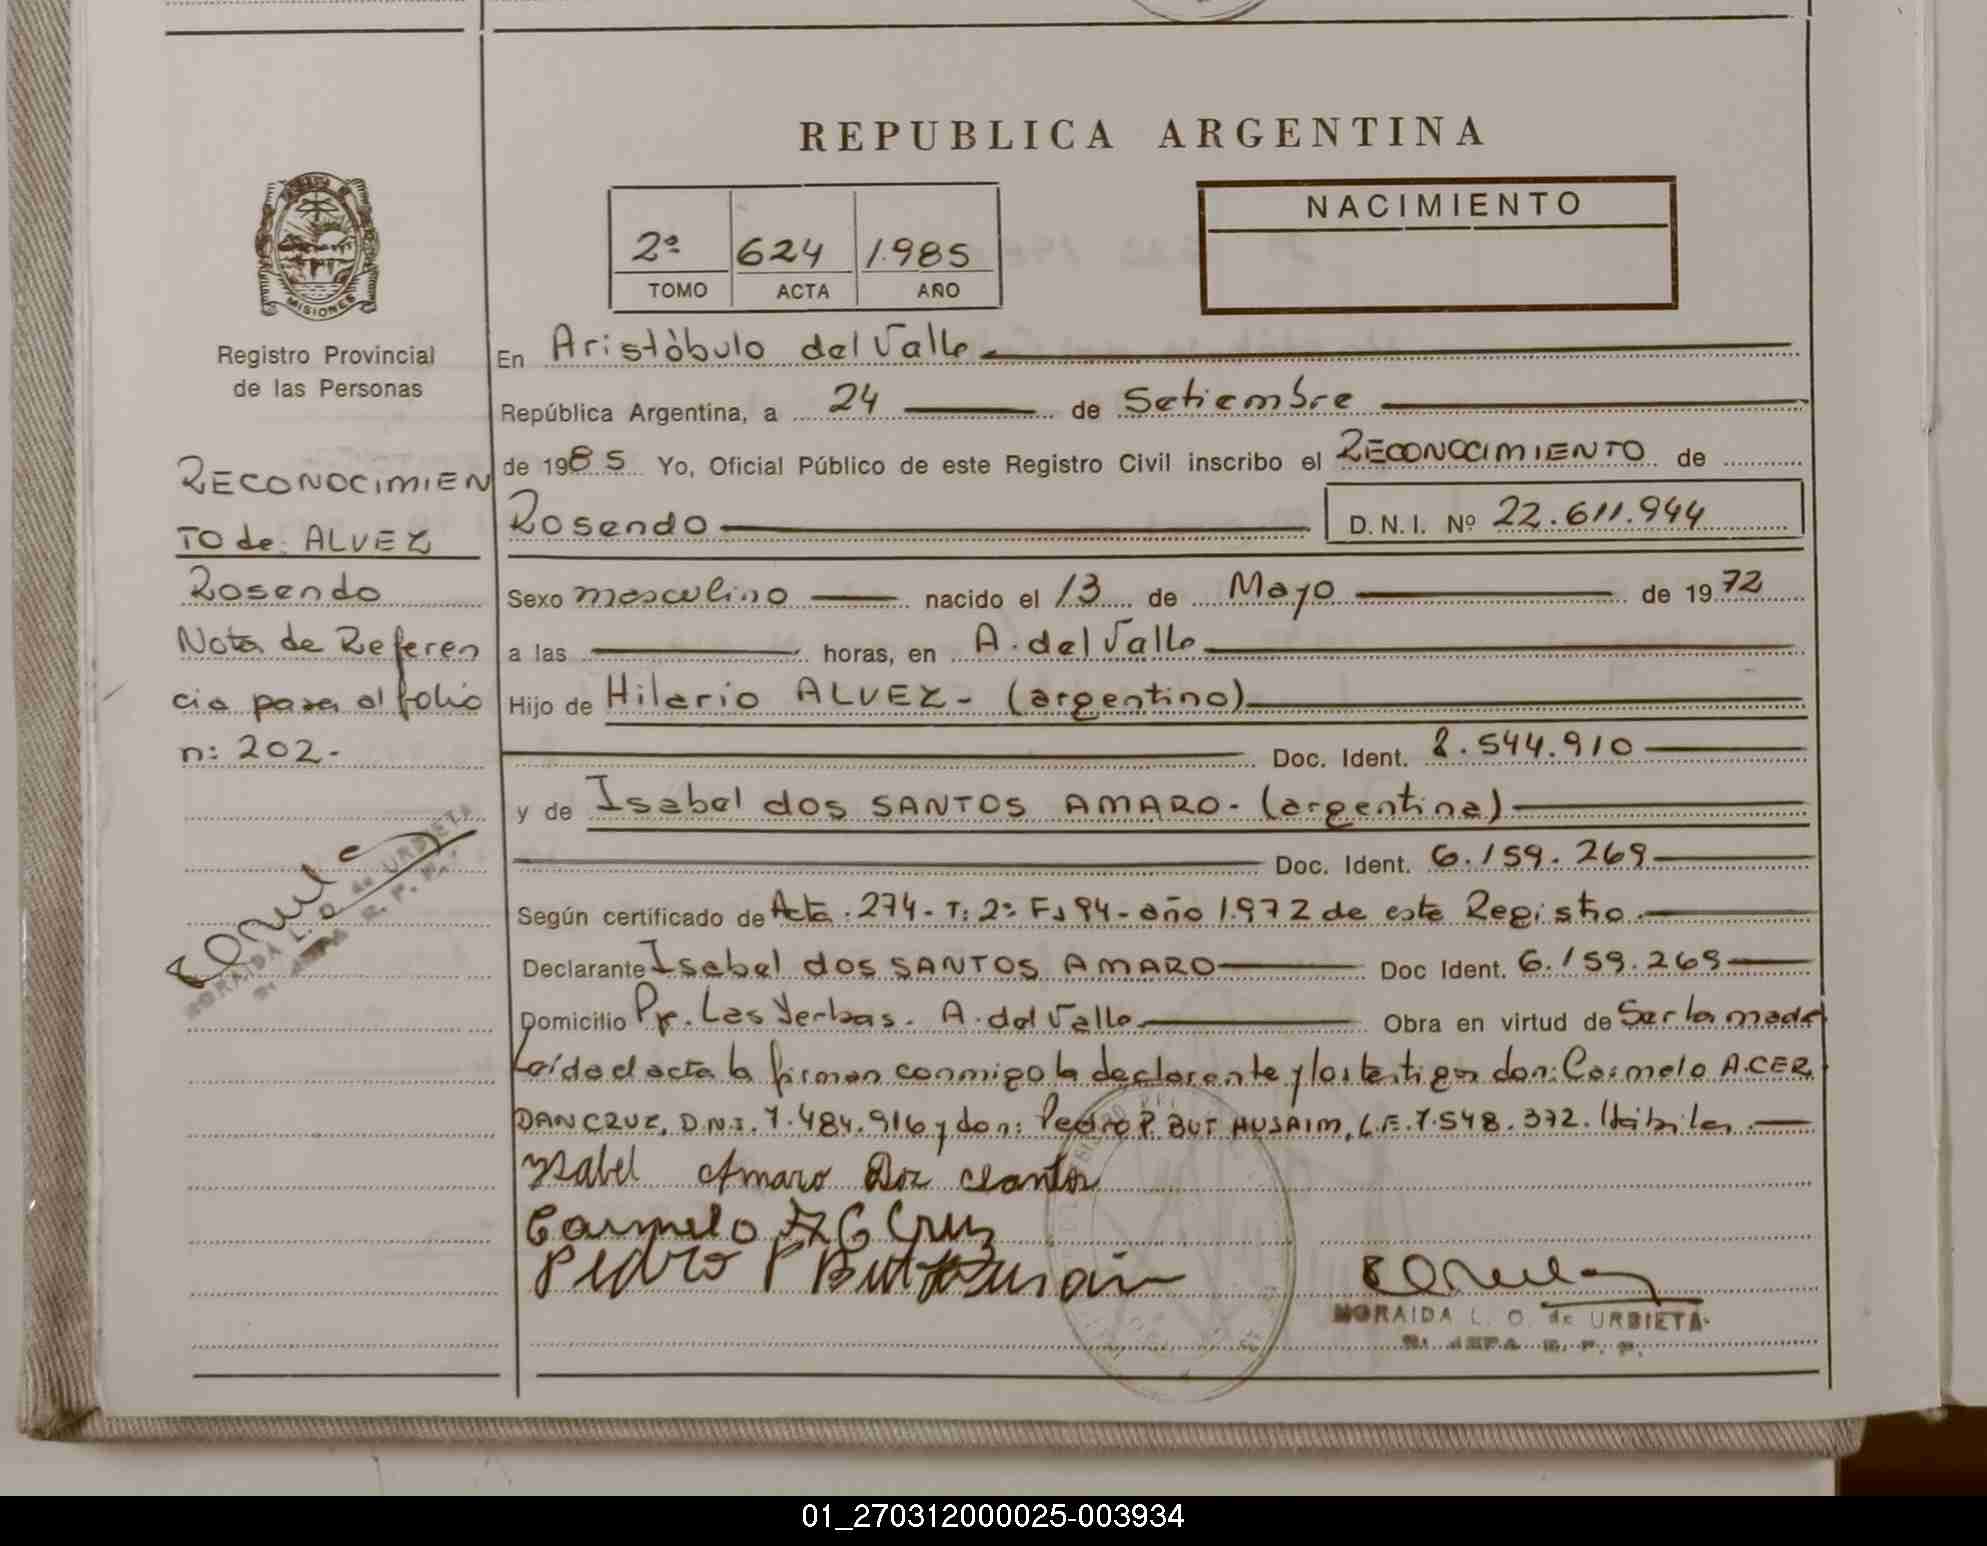 REPUBLICA ARGENTINA
MISIONES
Registro Provincial
de las Personas
2º 624 1.985
TOMO ACTA AÑO
NACIMIENTO
RECONOCIMIEN
TO de: ALVEZ
Rosendo
Nota de Referen
cia pasa al folio
n: 202.-
En Aristóbulo del Valle
República Argentina, a 24 de Setiembre
de 1985 Yo, Oficial Público de este Registro Civil inscribo el RECONOCIMIENTO de
Rosendo D.N.I. Nº 22.611.944
Sexo masculino nacido el 13 de Mayo de 1972
a las horas, en A. del Valle
Hijo de Hilario ALVEZ - (argentino)
Doc. Ident. 8.544.910
y de Isabel dos SANTOS AMARO - (argentina)
Doc. Ident. 6.159.269
Según certificado de Acta: 274 - T: 2º F: 94 - año 1.972 de este Registro
Declarante Isabel dos SANTOS AMARO Doc Ident. 6.159.269
Domicilio Pje. Las Yerbas. A. del Valle Obra en virtud de Ser la madre
Leída el acta la firman conmigo la declarante y los testigos don: Carmelo A. CER
DAN CRUZ, D.N.I. 7.484.916 y don: Pedro P. BUT HUSAIM, L.E. 7.548.372. Hábiles
Ysabel Amaro Dos Santos
Carmelo A C Cruz
Pedro P But Husain
NORAIDA L. O. de URBIETA
R. P. P.
NORAIDA L. O. de URBIETA
JEFA R. P. P.
01_270312000025-003934